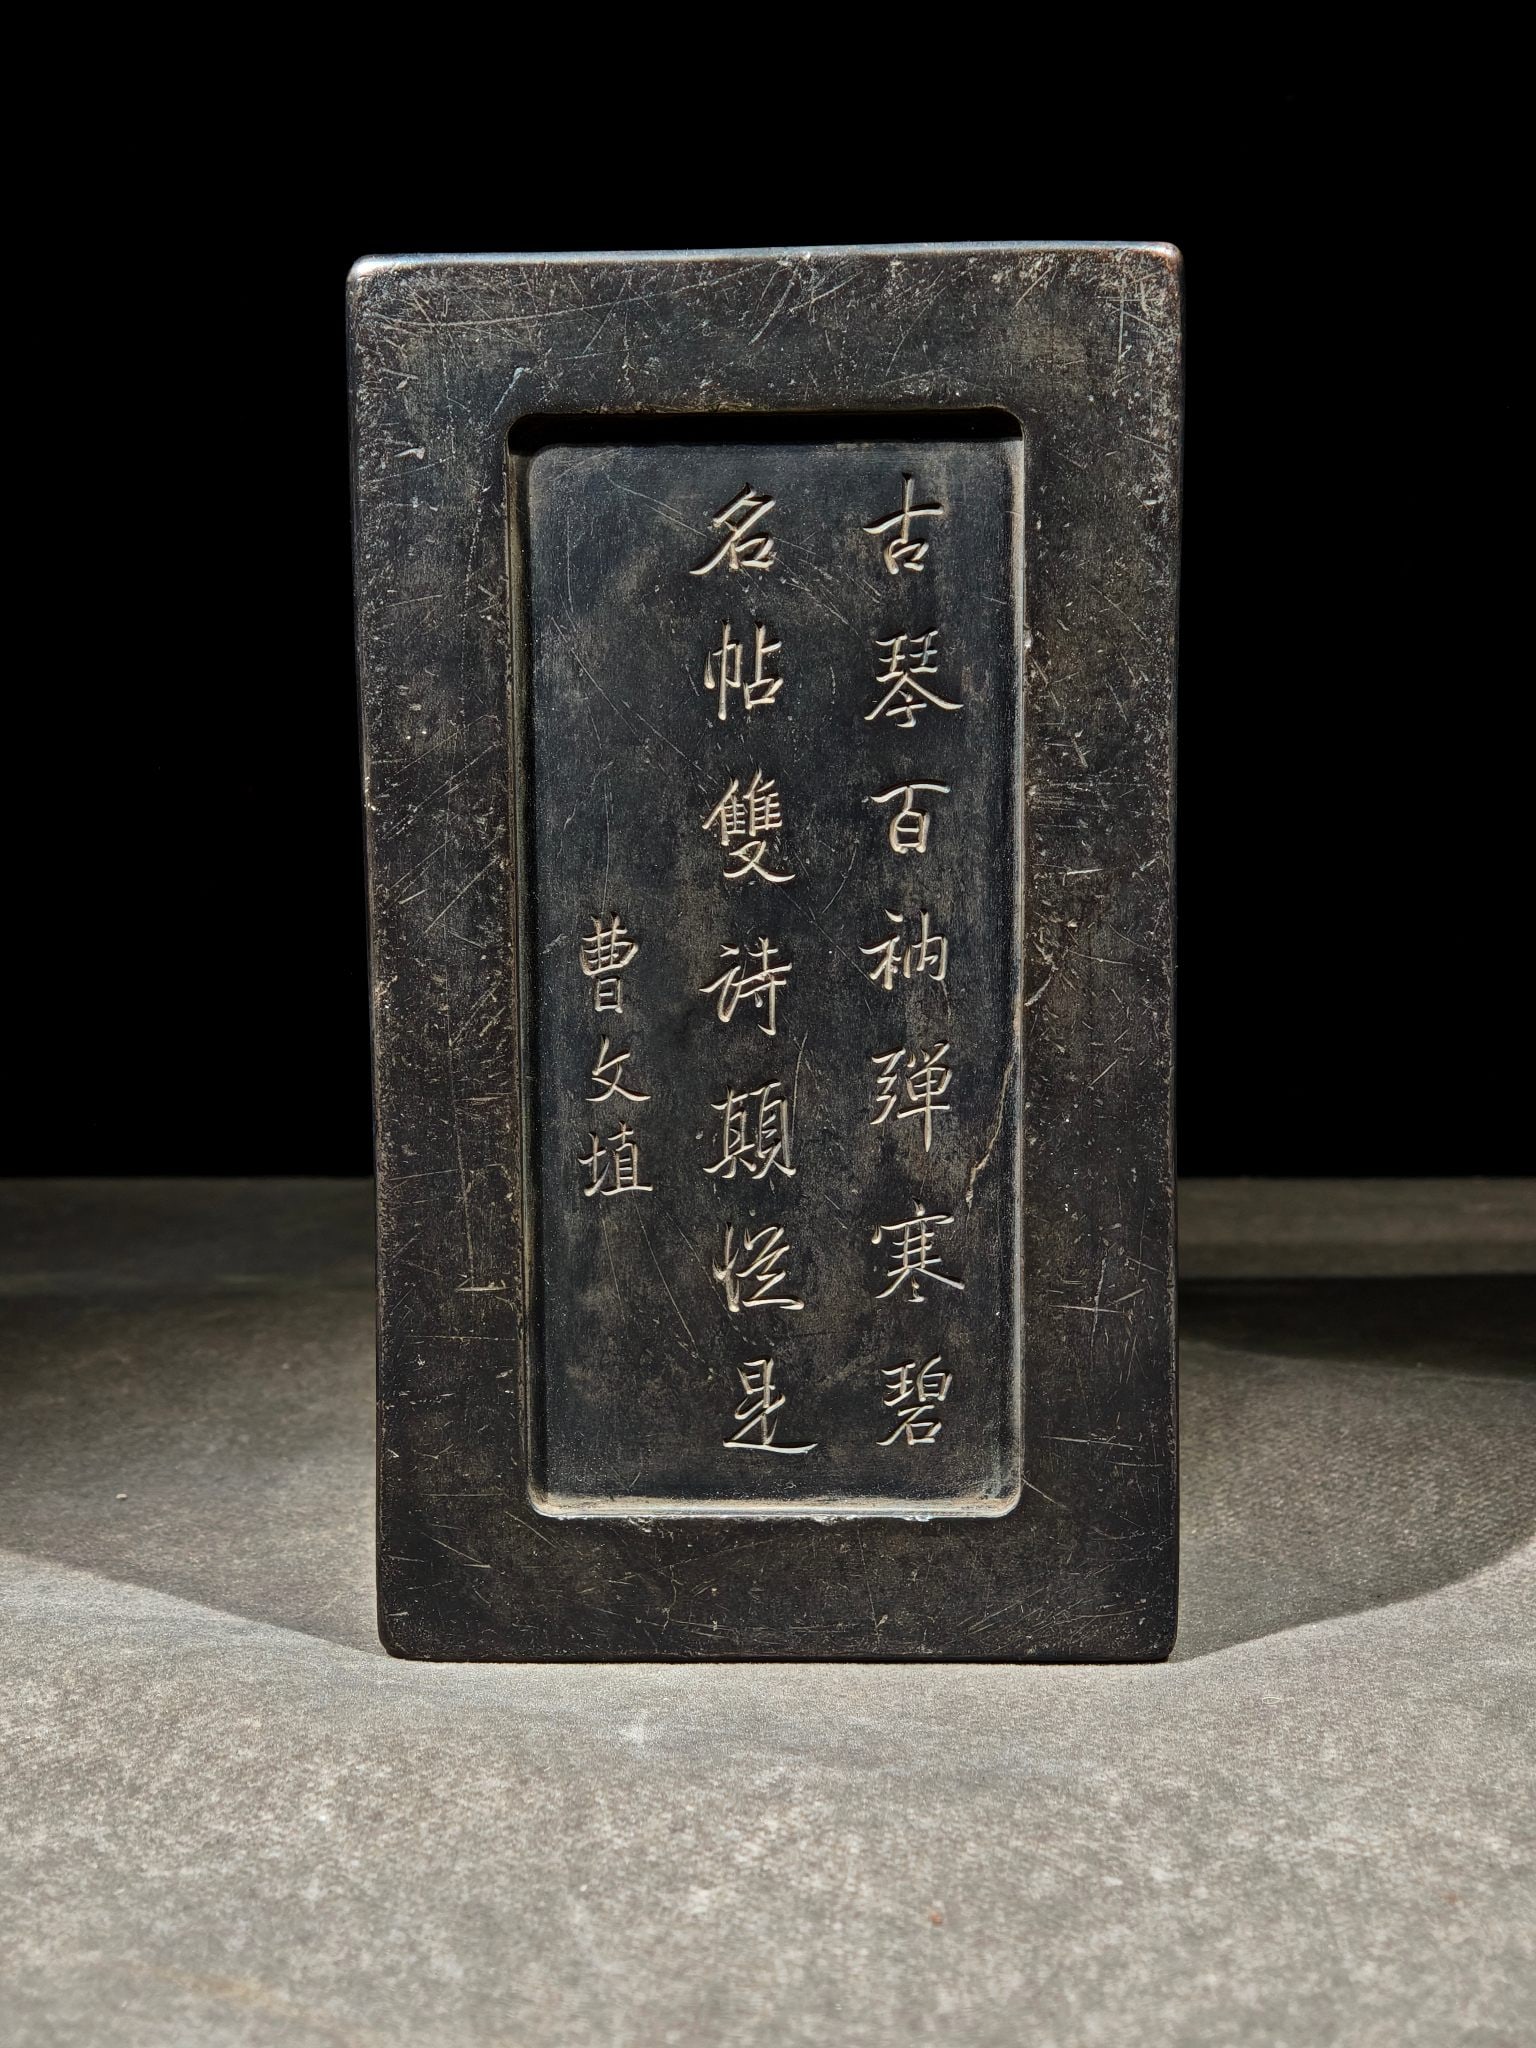 古琴百衲彈寒碧
名帖雙詩顛從是
曹文埴